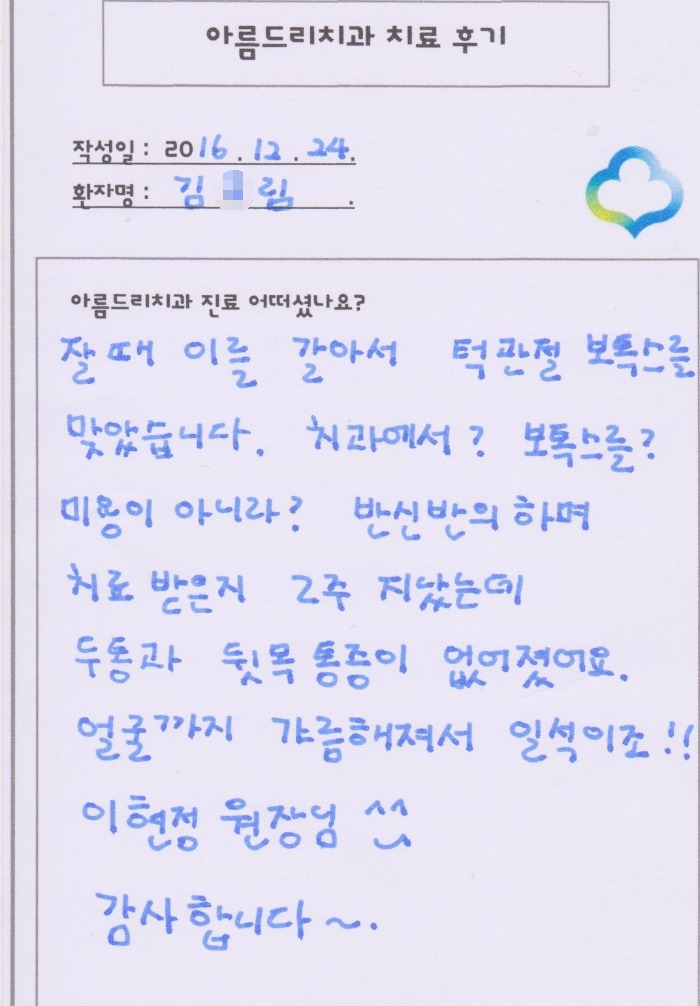 아름드리치과 치료 후기
작성일 : 2016 . 12 . 24.
환자명 : 김 림 .
아름드리치과 진료 어떠셨나요?
잘 때 이를 갈아서 턱관절 보톡스를
맞았습니다. 치과에서? 보톡스를?
미용이 아니라? 반신반의 하며
치료 받은지 2주 지났는데
두통과 뒷목 통증이 없어졌어요.
얼굴까지 갸름해져서 일석이조!!
이현정 원장님 ^^
감사합니다~.